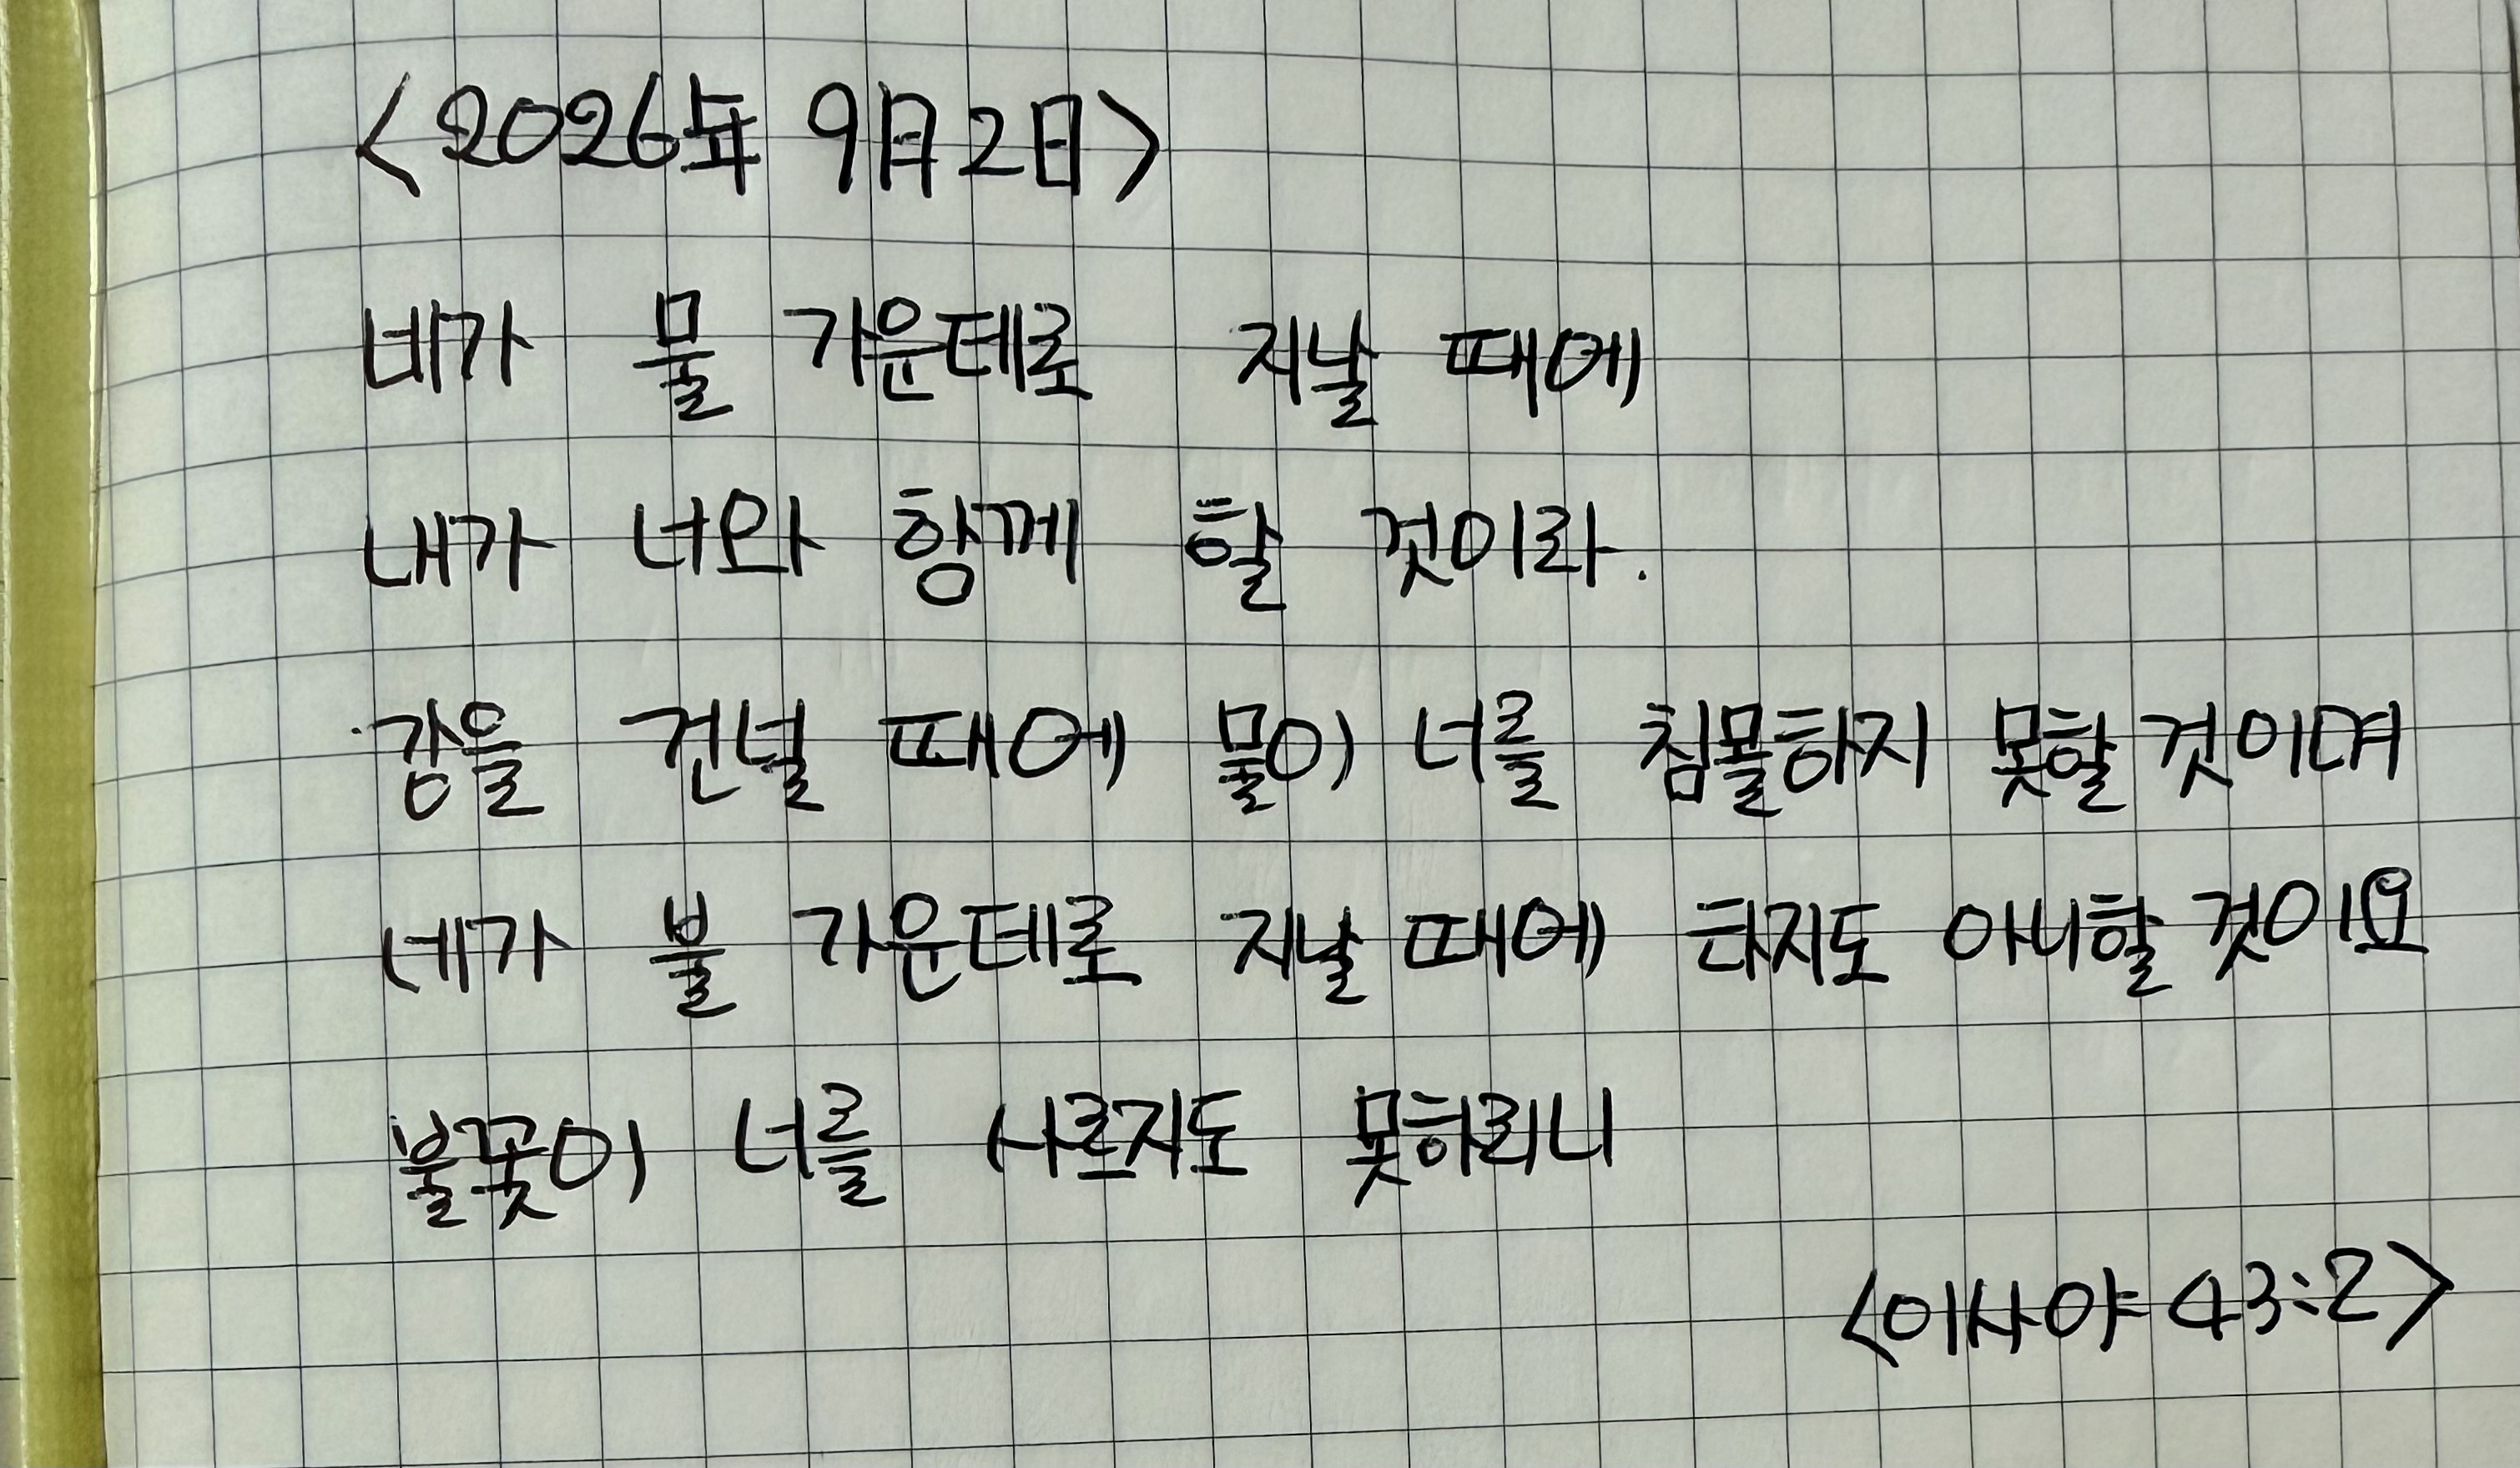 <2026年 9月 2日>
네가 물 가운데로 지날 때에
내가 너와 항께 할 것이라.
강을 건널 때에 물이 너를 침몰하지 못할 것이며
네가 불 가운데로 지날 때에 타지도 아니할 것이요
불꽃이 너를 사르지도 못하리니
<이사야 43:2>